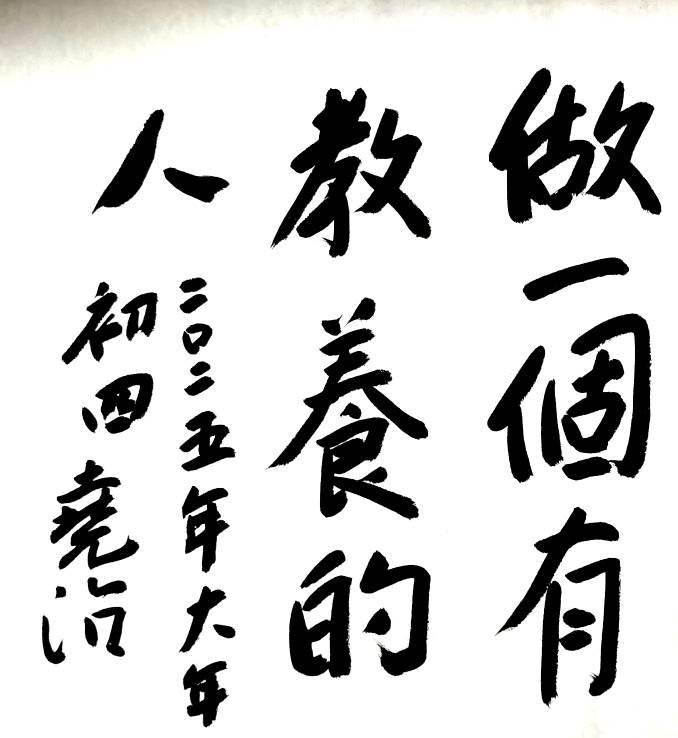 做一個有
教養的
人
二〇二五年大年
初四堯治